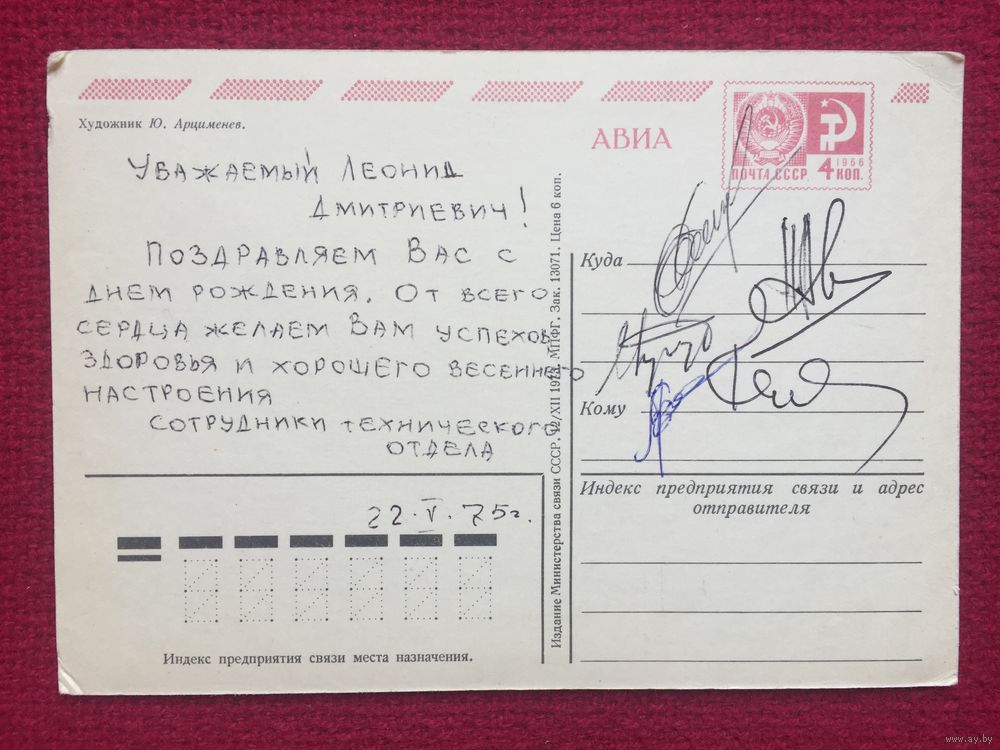 Художник Ю. Арцименев.
АВИА
1966
ПОЧТА СССР. 4 КОП.
УВАЖАЕМЫЙ ЛЕОНИД
ДМИТРИЕВИЧ!
ПОЗДРАВЛЯЕМ ВАС С
ДНЕМ РОЖДЕНИЯ. ОТ ВСЕГО
СЕРДЦА ЖЕЛАЕМ ВАМ УСПЕХОВ
ЗДОРОВЬЯ И ХОРОШЕГО ВЕСЕННЕГО
НАСТРОЕНИЯ
СОТРУДНИКИ ТЕХНИЧЕСКОГО
ОТДЕЛА
22.V.75г.
Индекс предприятия связи места назначения.
Издание Министерства связи СССР. МПФГ. Зак. 13071. Цена 6 коп.
Куда
Кому
Индекс предприятия связи и адрес
отправителя
www.ay.by